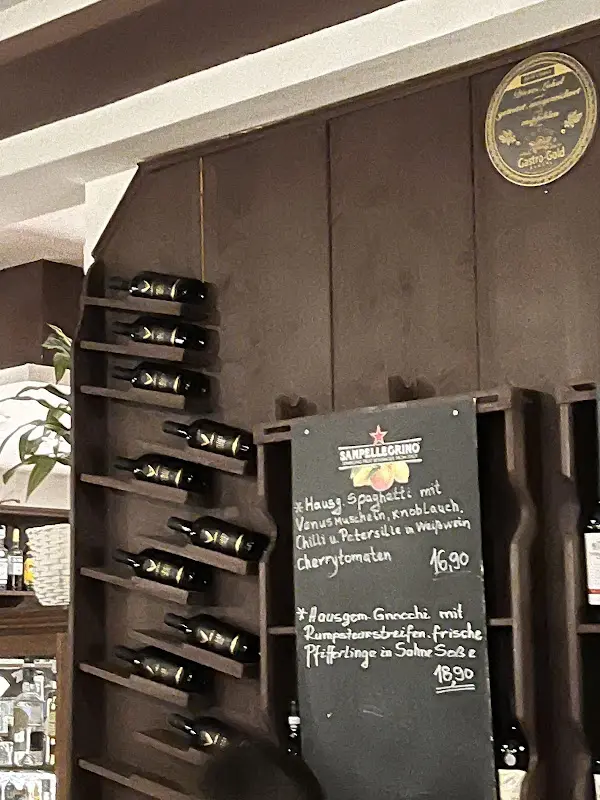 Gastro-Gold
SANPELLEGRINO
*Hausg. Spaghetti mit
Venus Muscheln, Knoblauch,
Chilli u Petersilie in Weißwein
cherrytomaten 16,90
*Hausgem. Gnocchi mit
Rumpsteakstreifen. frische
Pfifferlinge in Sahne Soße
18,90